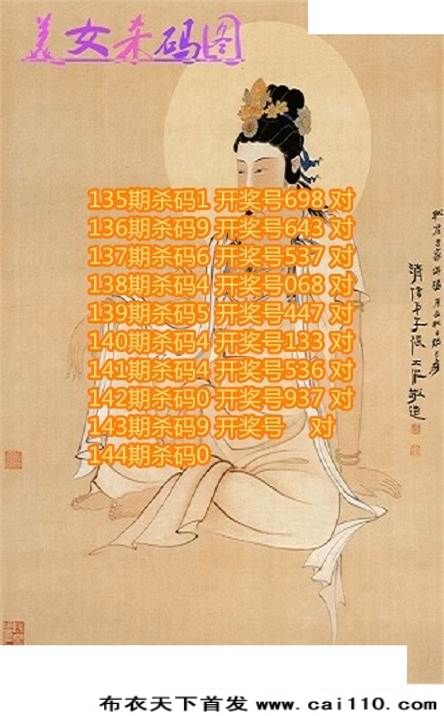 美女杀码图
135期杀码1 开奖号698 对
136期杀码9 开奖号643 对
137期杀码6 开奖号537 对
138期杀码4 开奖号068 对
139期杀码5 开奖号447 对
140期杀码4 开奖号133 对
141期杀码4 开奖号536 对
142期杀码0 开奖号937 对
143期杀码9 开奖号 对
144期杀码0
布衣天下首发 www.cai110.com